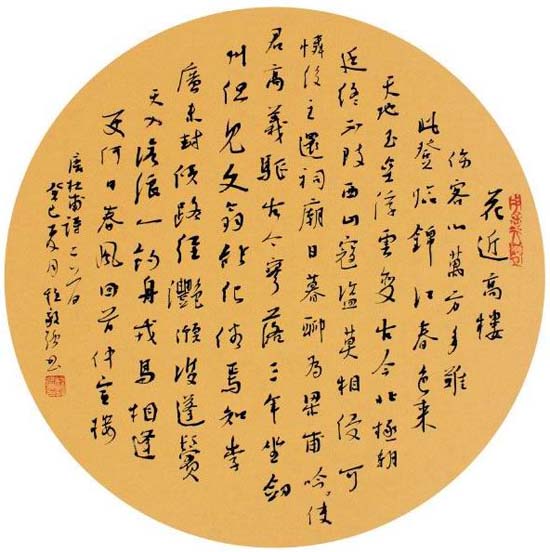 花近高樓
傷客心萬方多難
此登臨錦江春色来
天地玉壘浮雲變古今北極朝
廷終不改西山寇盗莫相侵可
憐後主還祠廟日暮聊為梁甫吟使
君高義驅古今寥落三年坐劍
州但見文翁能化俗焉知李
廣未封侯路經灩澦雙蓬鬢
天入滄浪一釣舟戎馬相逢
更何日春風回首仲宣樓
唐杜甫詩二首
癸巳夏月